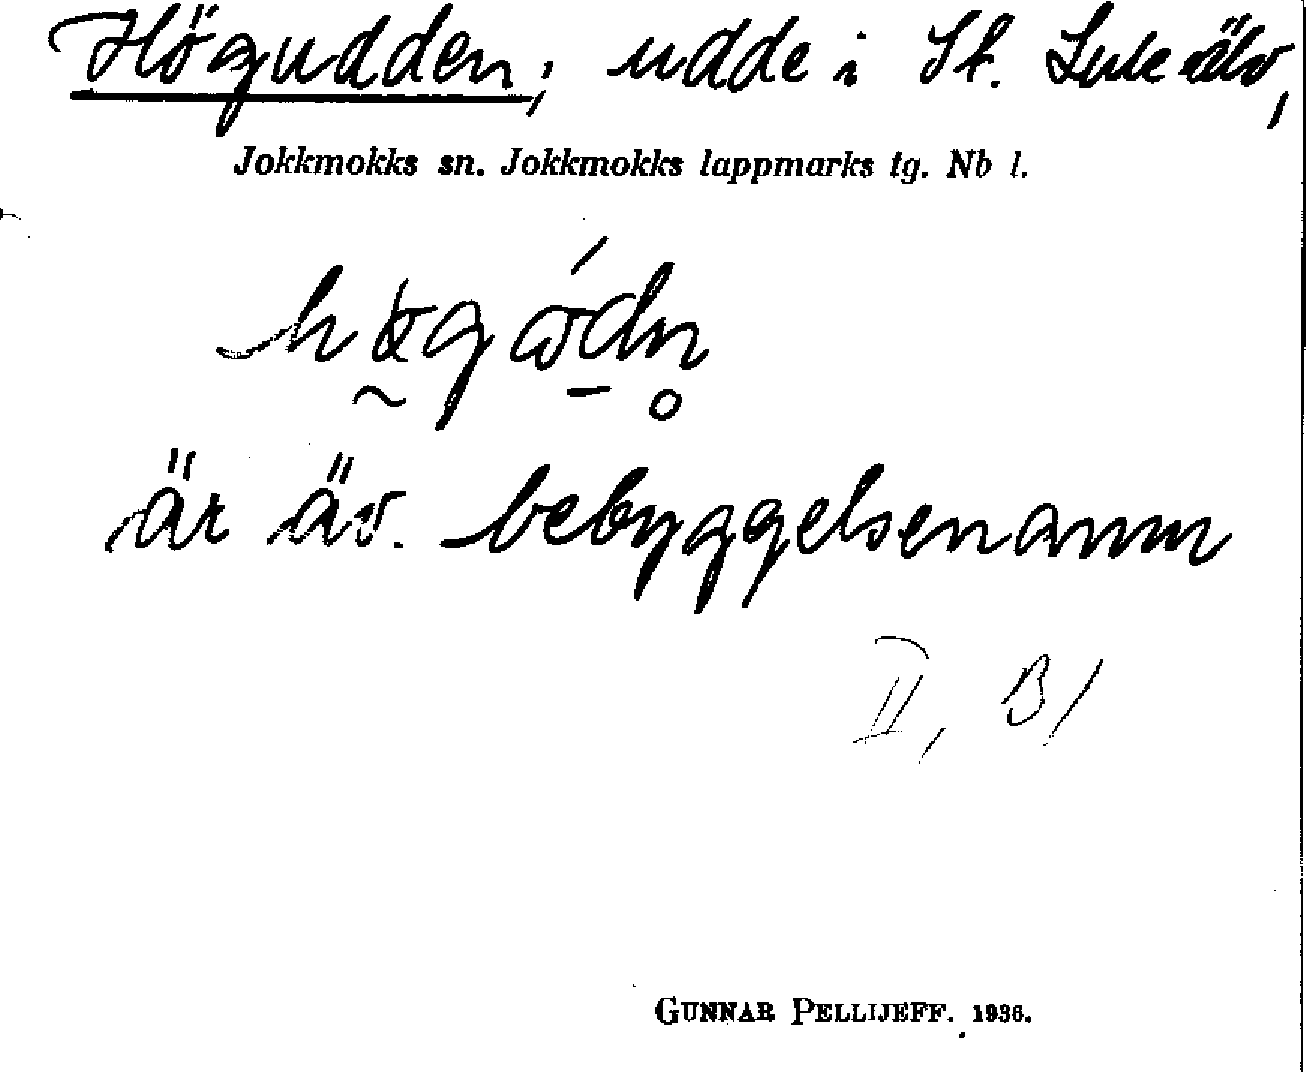 Högudden, udde i St. Lule älv,
Jokkmokks sn. Jokkmokks lappmarks tg. Nb l.
är äv. bebyggelsenamn
II, B/
GUNNAR PELLIJEFF. 1936.